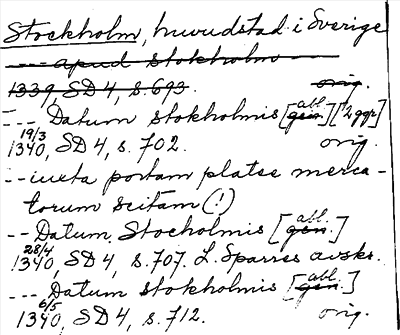 Stockholm, huvudstad i Sverige
--- apud stokholm ---
1339, SD 4, s. 693. orig.
--- Datum stokholmis [gen abl.] [2 ggr]
19/3
1340, SD 4, s. 702. orig.
--- iuxta portam platee merca-
torum scitam (!)
-- Datum Stocholmis [gen. abl.]
28/4
1340, SD 4, s. 707. L. Sparres avskr.
--- Datum stokholmis [gen. abl.]
6/5
1340, SD 4, s. 712. orig.